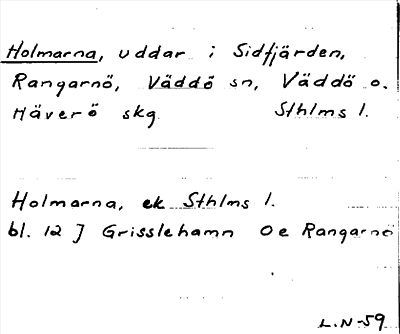 Holmarna, uddar i Sidfjärden,
Rangarnö, Väddö sn, Väddö o.
Häverö skg Sthlms l.
Holmarna, ek Sthlms l.
bl. 12 J Grisslehamn O e Rangarnö
L.N-59